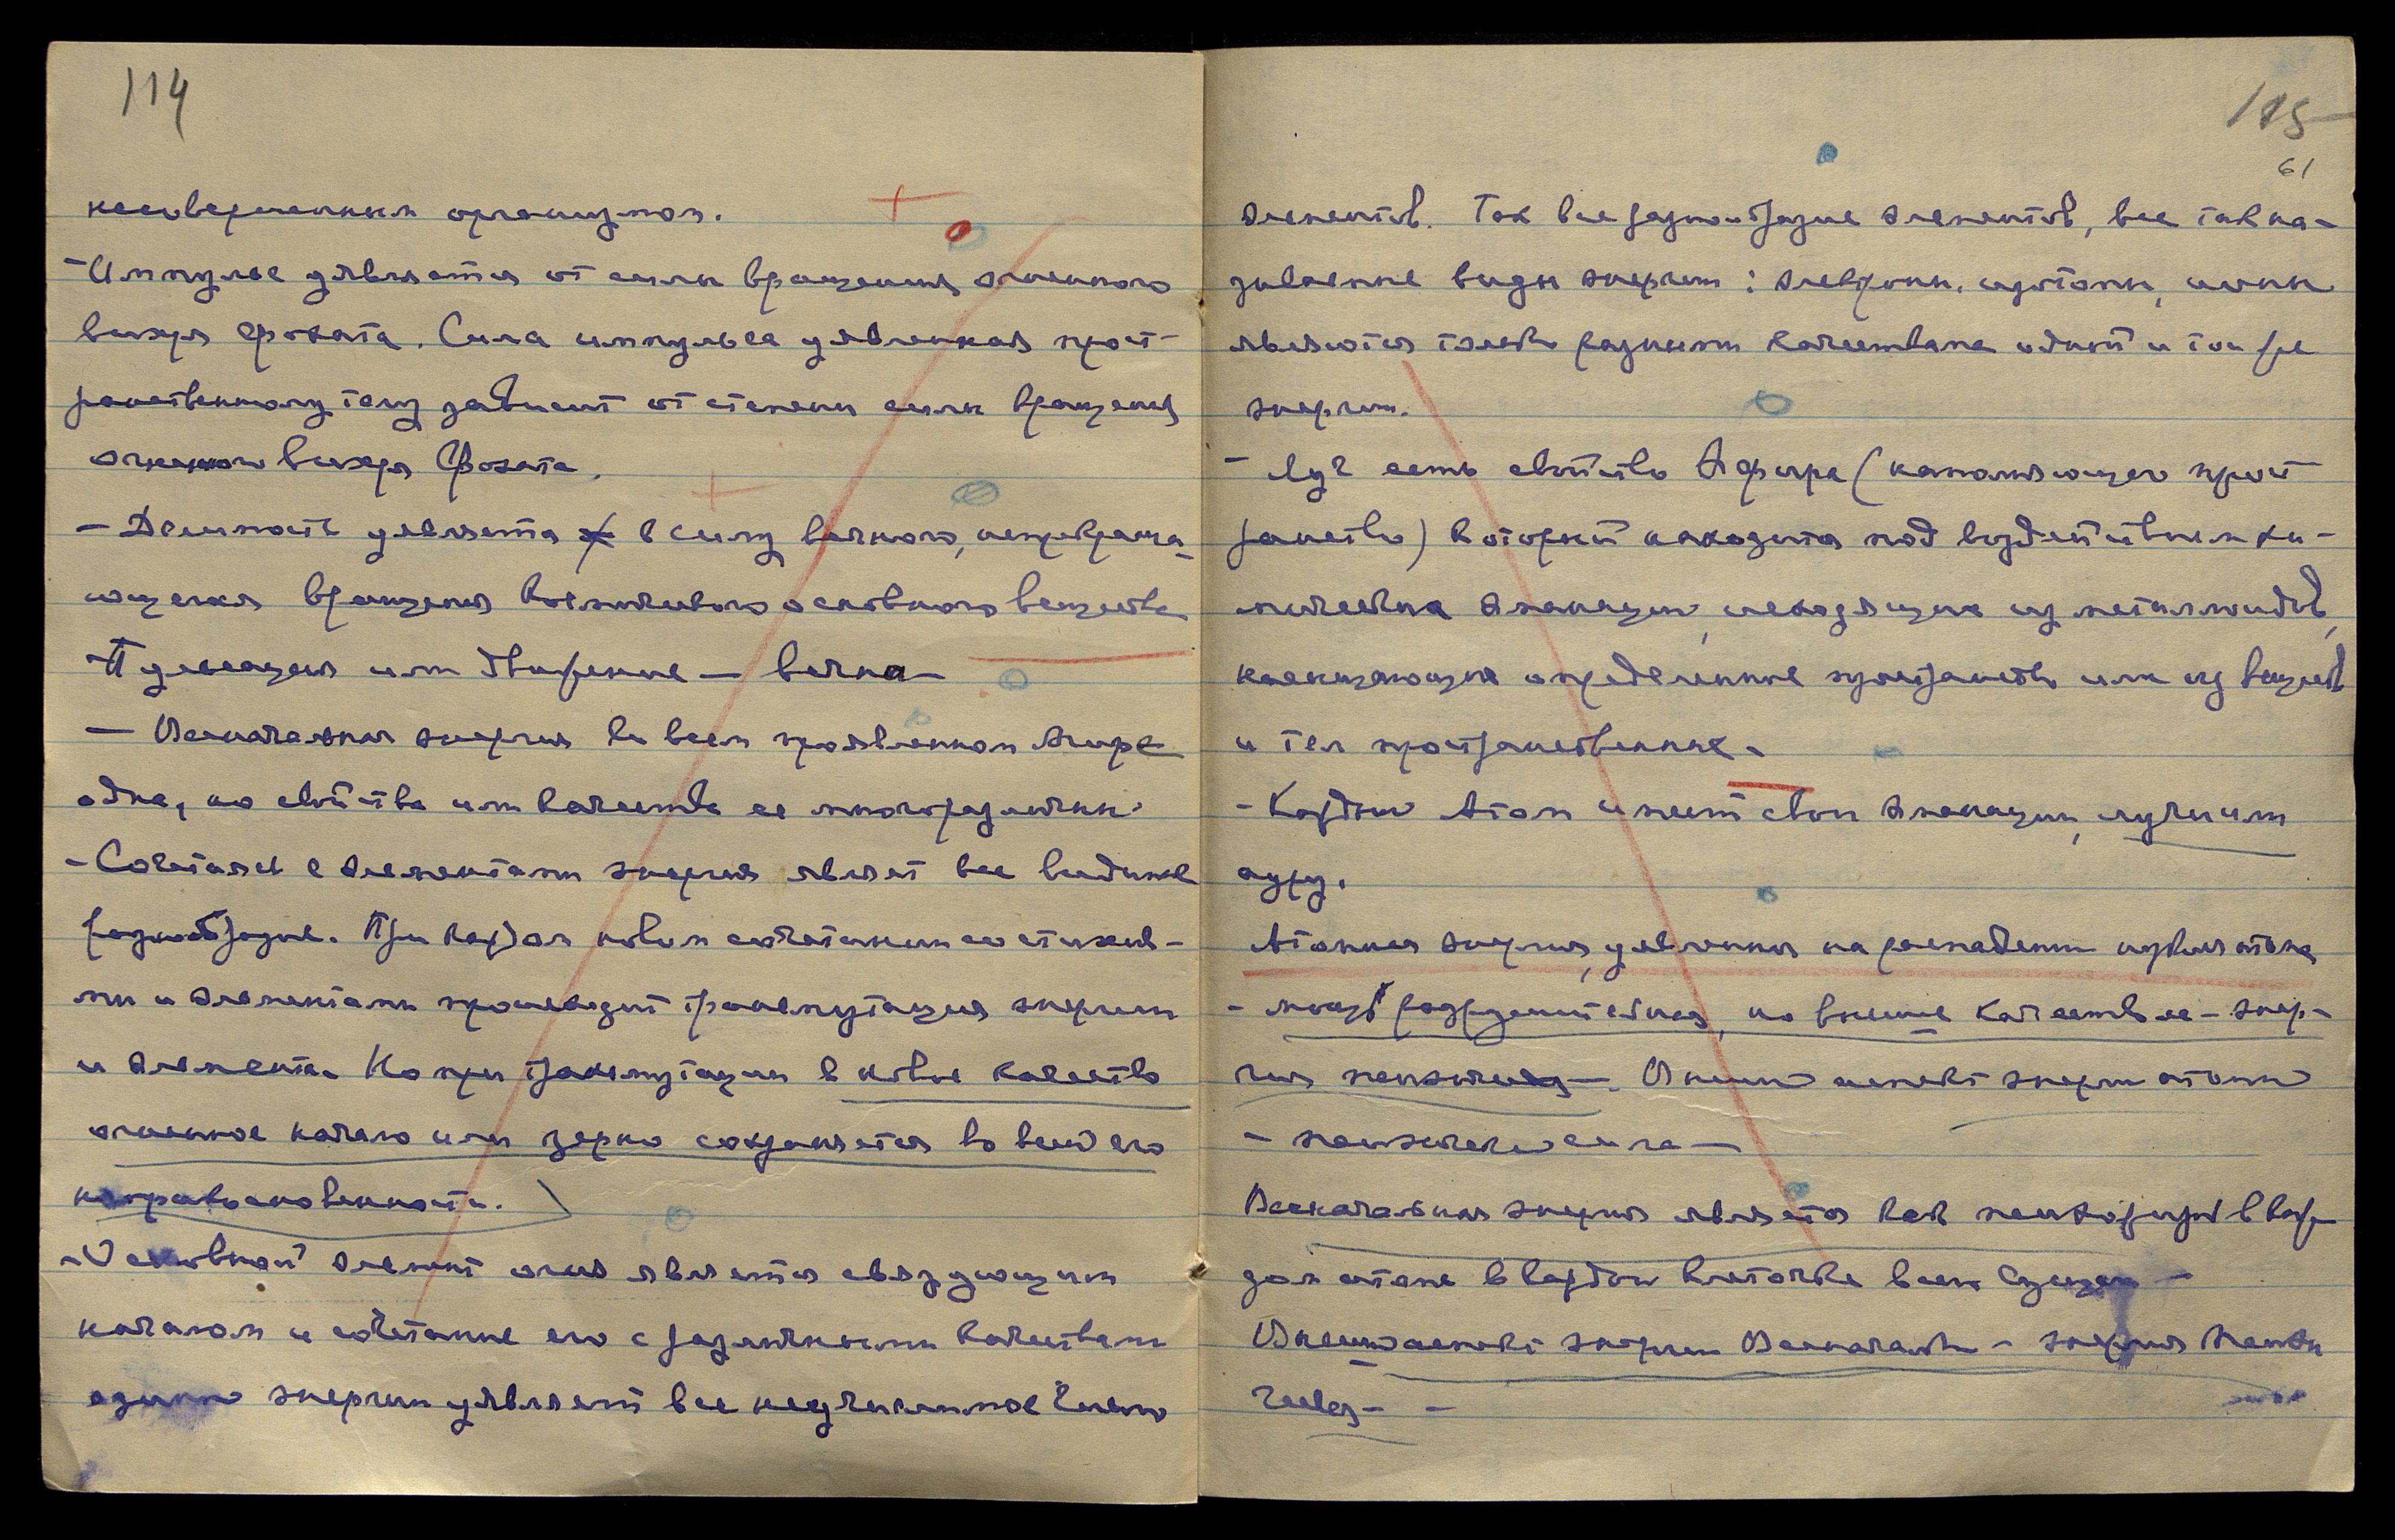 114
несовершенным организмом.
– Импульс уявляется от силы вращения огненного
вихря Фохата. Сила импульса уявленная прост-
ранственному телу зависит от степени силы вращения
огненного вихря Фохата.
– Делимость уявляется в силу вечного, непрекраща-
ющегося вращения космического основного вещества
Пульсация или движение – вечна –
– Всеначальная энергия во всем проявленном Мире
одна, но свойства или качества ее многоразличны.
– Сочетаясь с элементами энергия являет все видимое
разнообразие. При каждом новом сочетании со стихия-
ми и элементами происходит трансмутация энергии
и элемента. Но при трансмутации в новое качество
огненное начало или зерно сохраняется во всей его
неприкосновенности.
– Основной элемент огня является связующим
началом и сочетание его с различными качествами
единой энергии уявляет все неисчислимое число
115
61
элементов. Так все разнообразие элементов, все так на-
зываемые виды энергии: электроны, протоны, ионы
являются только разными качествами одной и той же
энергии.
– Луч есть свойство Эфира (наполняющего прост
ранство) который находится под воздействием хи-
мических эманаций, исходящих из металлоидов,
насыщающих определенное пространство или из веществ
и тел пространственных.
– Каждый Атом имеет свои эманации, лучи или
ауру.
Атомная энергия, уявленная на распадении атома
– мощь разрушительная, но высшее качество ее – энер-
гия психическая –. Высший аспект энергии атома
– психическая сила –
Всеначальная энергия является как психожизнь в каж-
дом атоме в каждой клеточке всего Сущего –
Высший аспект энергии Всеначальной – энергия психи
ческая –